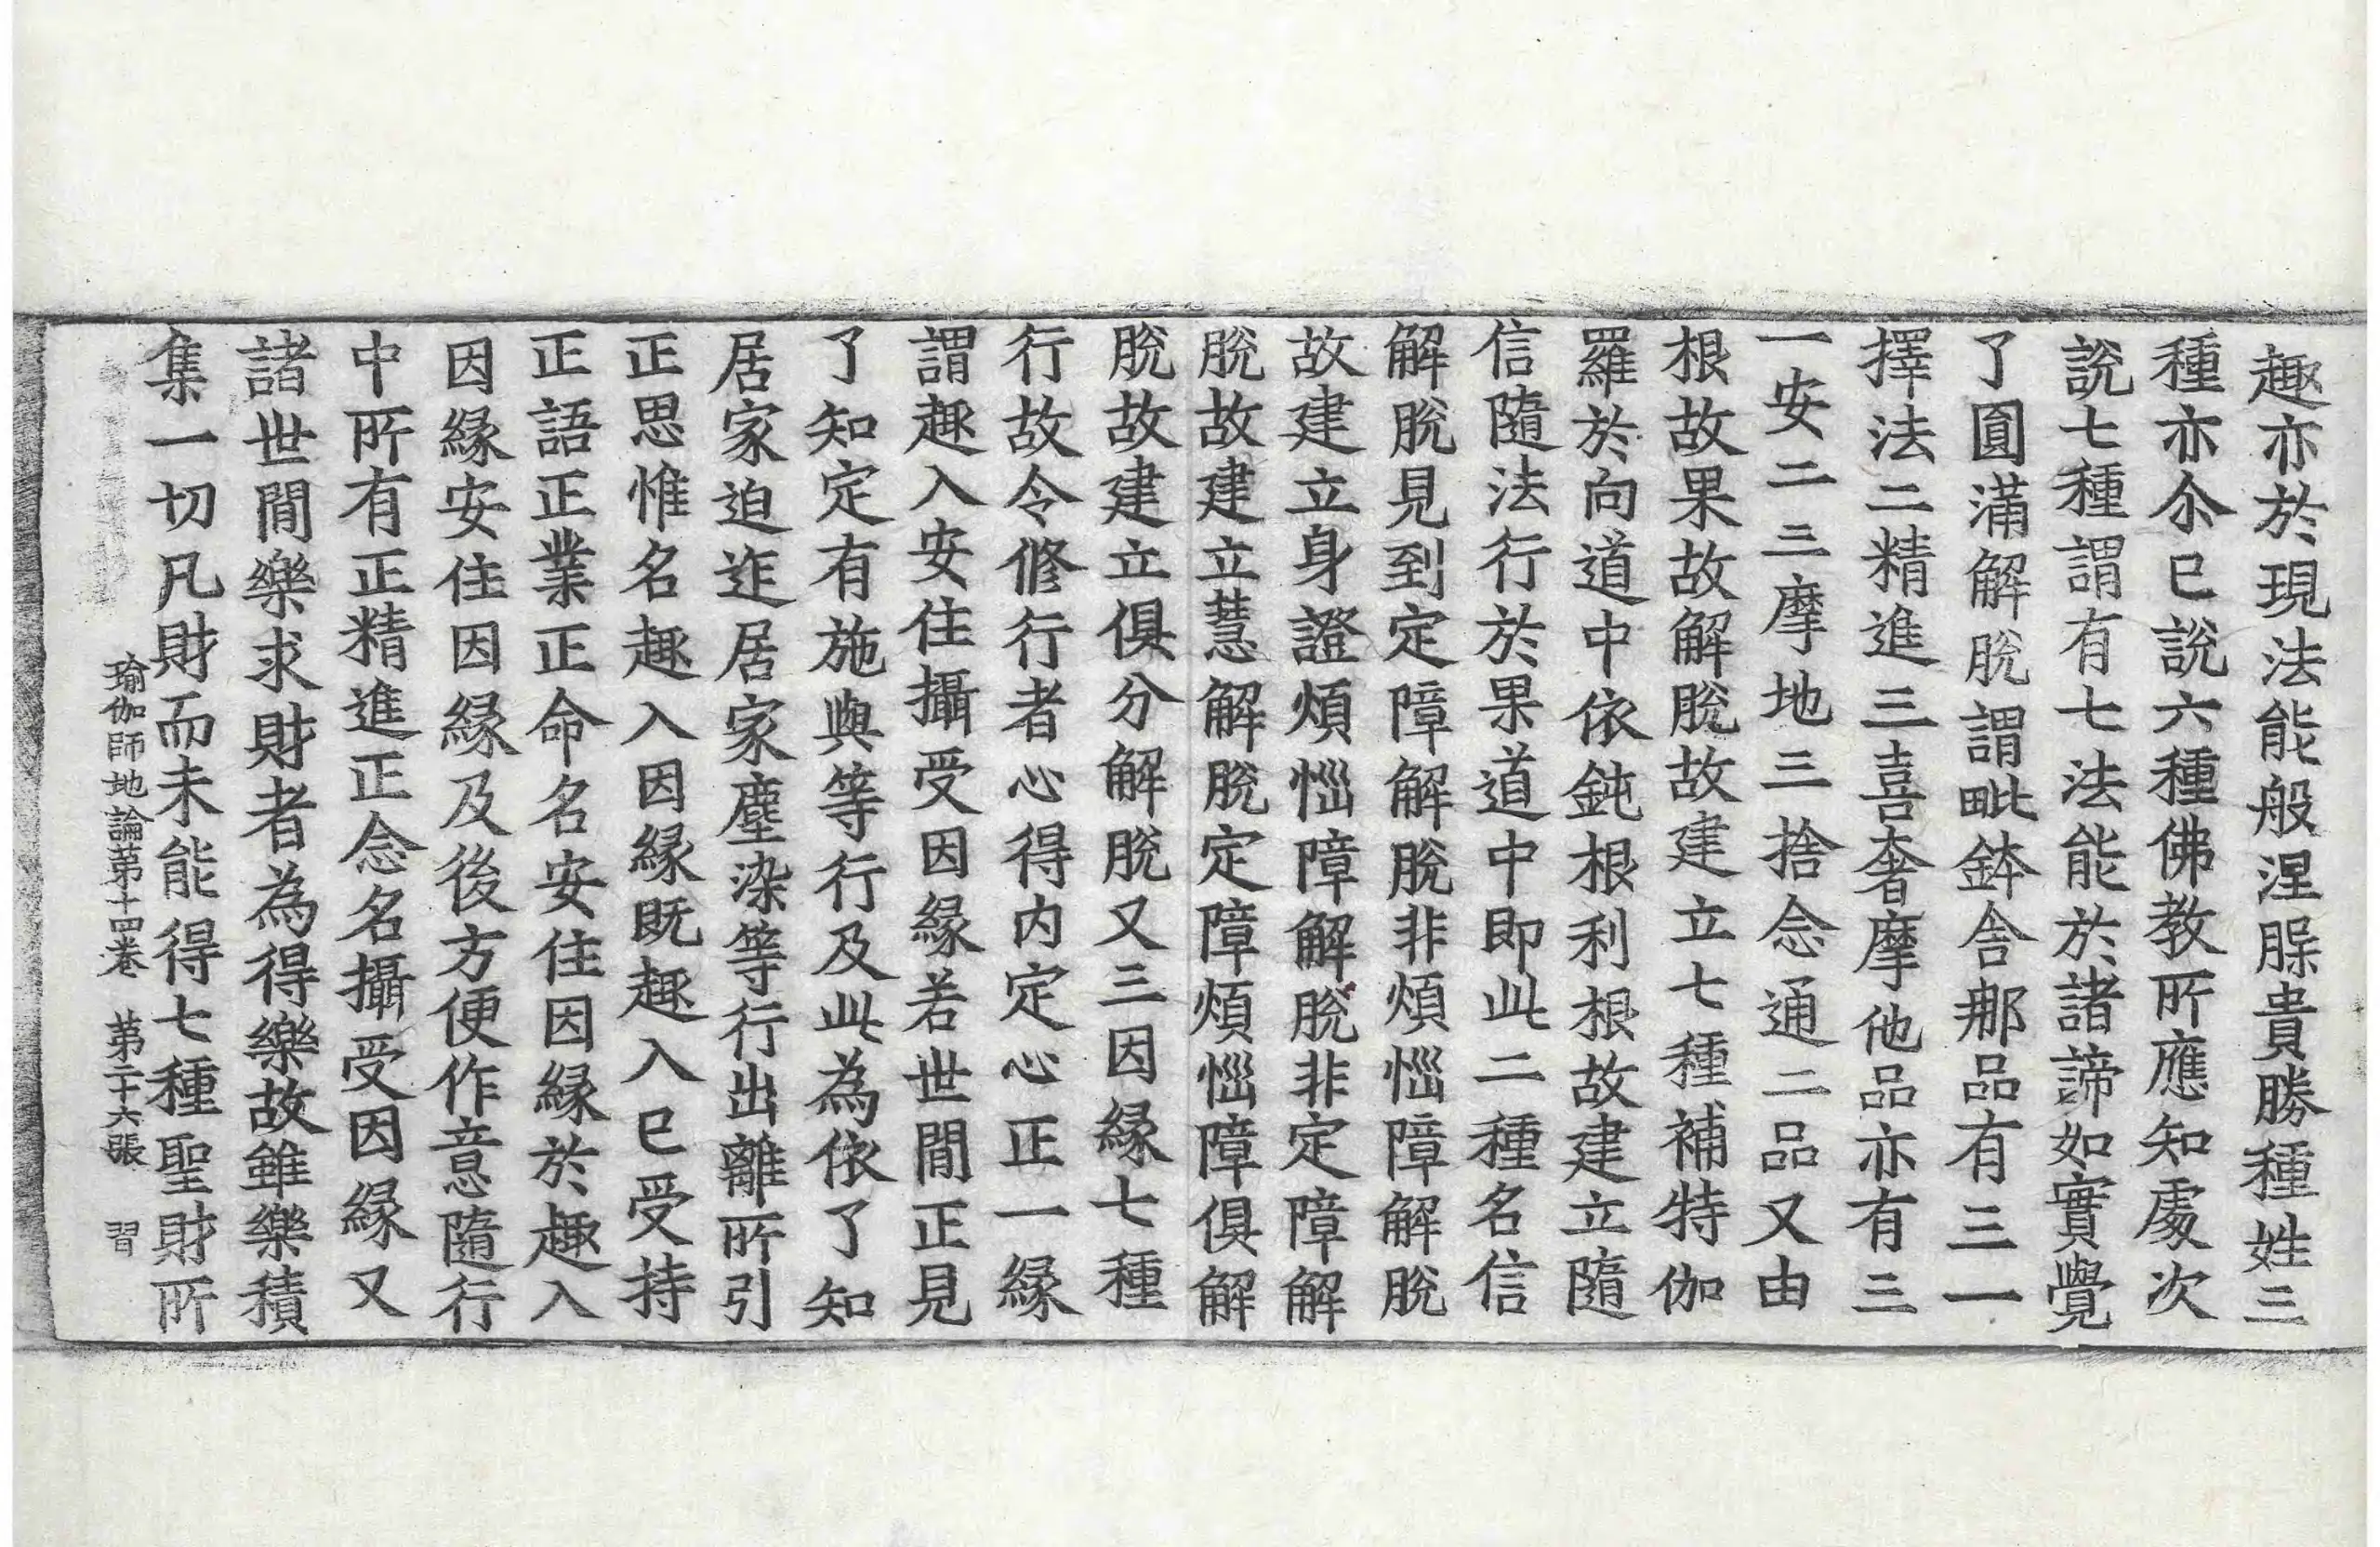 趣亦於現法能般涅脵貴勝種姓三
種亦尒已說六種佛教所應知處次
說七種謂有七法能於諸諦如實覺
了圓滿解脫謂毗鉢舍那品有三一
擇法二精進三喜奢摩他品亦有三
一安二三摩地三捨念通二品又由
根故果故解脫故建立七種補特伽
羅於向道中依鈍根利根故建立隨
信隨法行於果道中即此二種名信
解脫見到定障解脫非煩惱障解脫
故建立身證煩惱障解脫非定障解
脫故建立慧解脫定障煩惱障俱解
脫故建立俱分解脫又三因緣七種
行故令修行者心得內定心正一緣
謂趣入安住攝受因緣若世間正見
了知定有施與等行及此為依了知
居家迫迮居家塵染等行出離所引
正思惟名趣入因緣既趣入已受持
正語正業正命名安住因緣於趣入
因緣安住因緣及後方便作意隨行
中所有正精進正念名攝受因緣又
諸世間樂求財者為得樂故雖樂積
集一切凡財而未能得七種聖財所
瑜伽師地論第十四卷 第二十六張 習